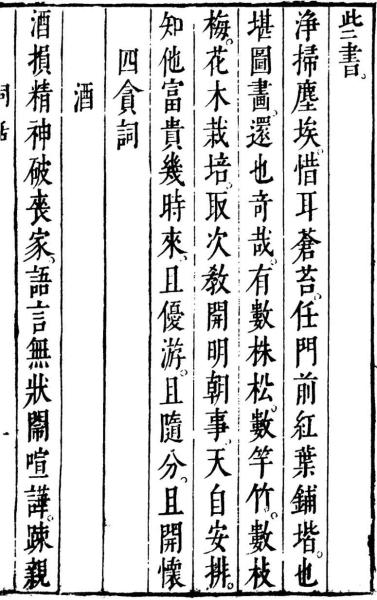 些書。
淨掃塵埃。惜耳蒼苔。任門前紅葉鋪堦。也
堪圖畫。還也竒哉。有數株松。數竿竹。數枝
梅。花木栽培。取次教開明朝事。天自安排。
知他富貴幾時來。且優游。且隨分。且開懷
四貪詞
酒
酒損精神破喪家。語言無狀鬧喧譁。疎親
一